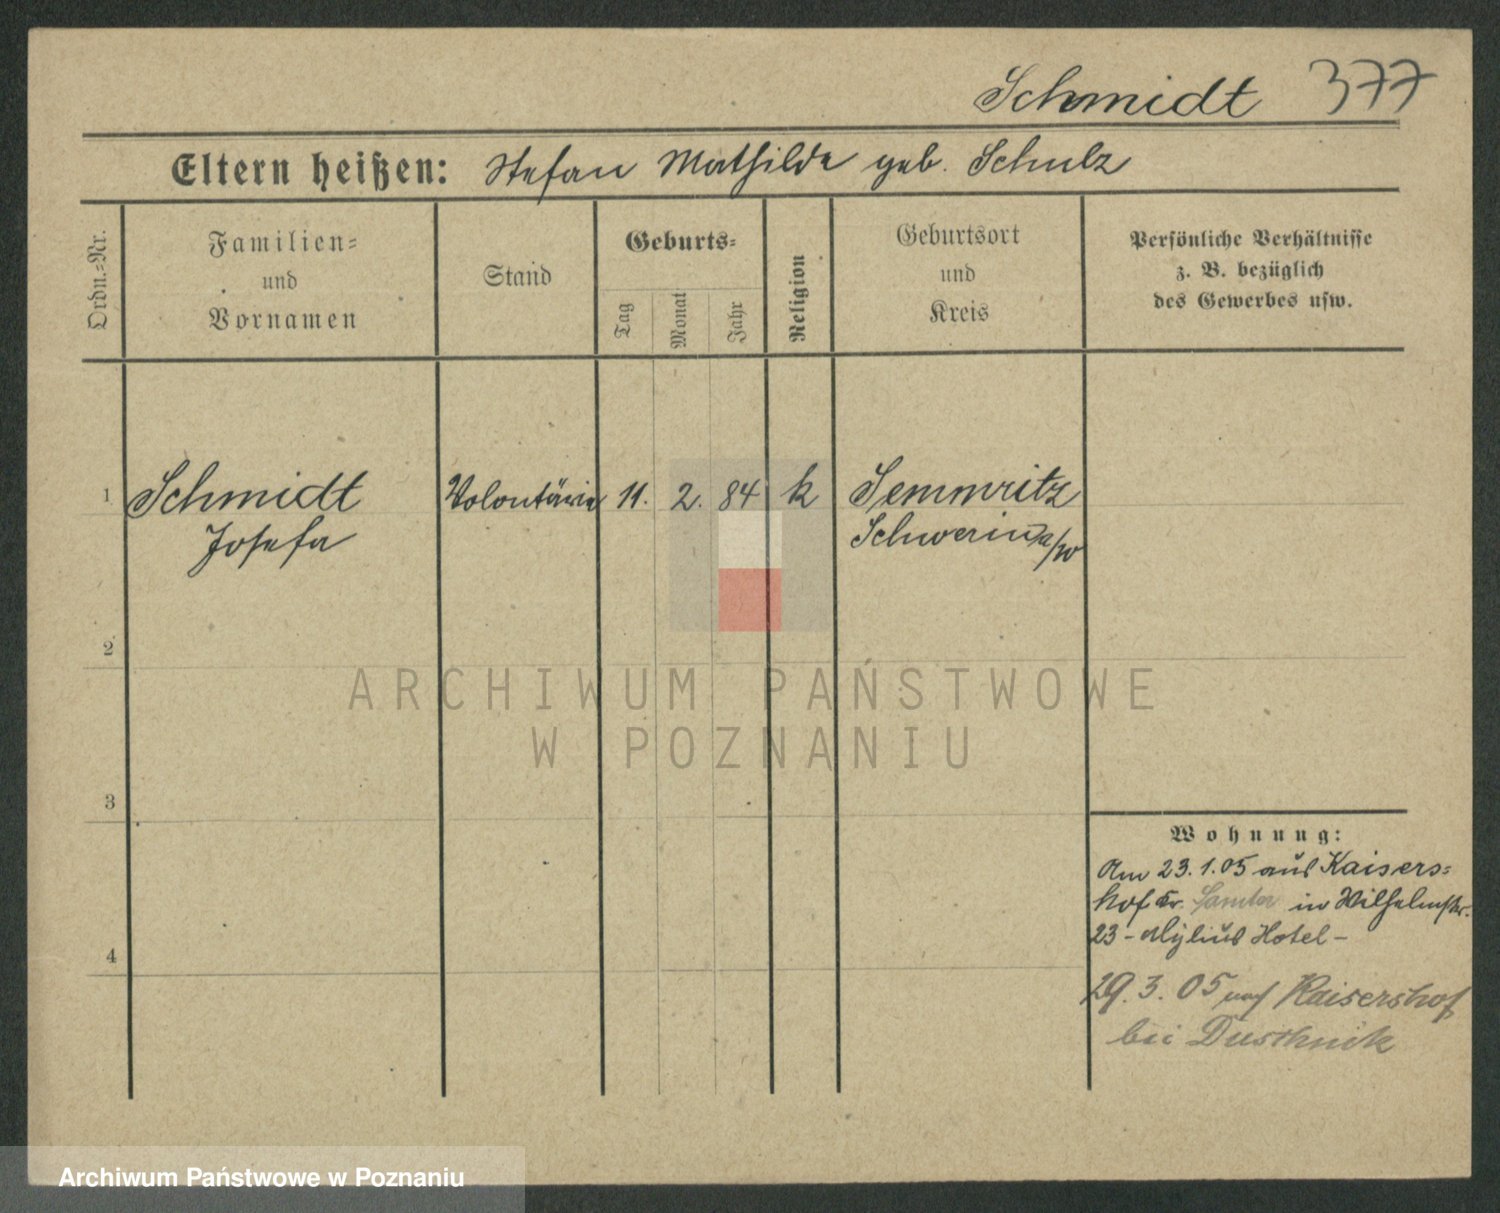 Schmidt 377
Eltern heißen: Stefan Mathilde geb. Schulz
Ordn.=Nr.
Familien=
und
Vornamen
Stand
Geburts=
Tag
Monat
Jahr
Religion
Geburtsort
und
Kreis
Persönliche Verhältnisse
z. B. bezüglich
des Gewerbes usw.
1 Schmidt Volontärin 11. 2. 84 k Semmritz
Josefa Schwerin a/W
2
ARCHIWUM PAŃSTWOWE
W POZNANIU
3
Wohnung:
Am 23.1.05 aus Kaisers=
hof Kr. Samter in Wilhelmstr.
23 - Mylius Hotel -
4
29.3.05 nach Kaisershof
bei Dusthnik
Archiwum Państwowe w Poznaniu